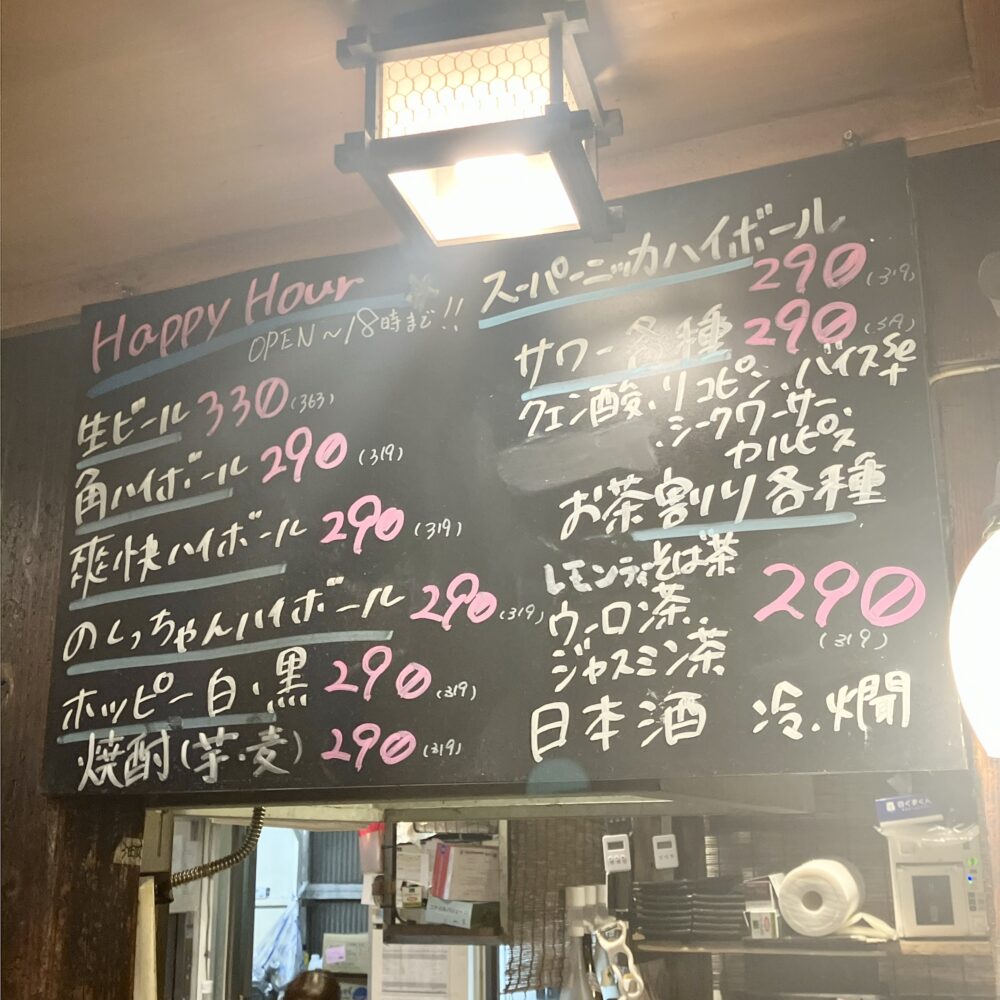 Happy Hour
OPEN〜18時まで!!
生ビール 330 (363)
角ハイボール 290 (319)
爽快ハイボール 290 (319)
のくっちゃんハイボール 290 (319)
ホッピー白・黒 290 (319)
焼酎(芋・麦) 290 (319)
スーパーニッカハイボール
290 (319)
サワー各種 290
クエン酸、リコピン、バイス
シークワーサー、
カルピス
お茶割り各種
レモンティそば茶
ウーロン茶、
ジャスミン茶
290
(319)
日本酒 冷・燗